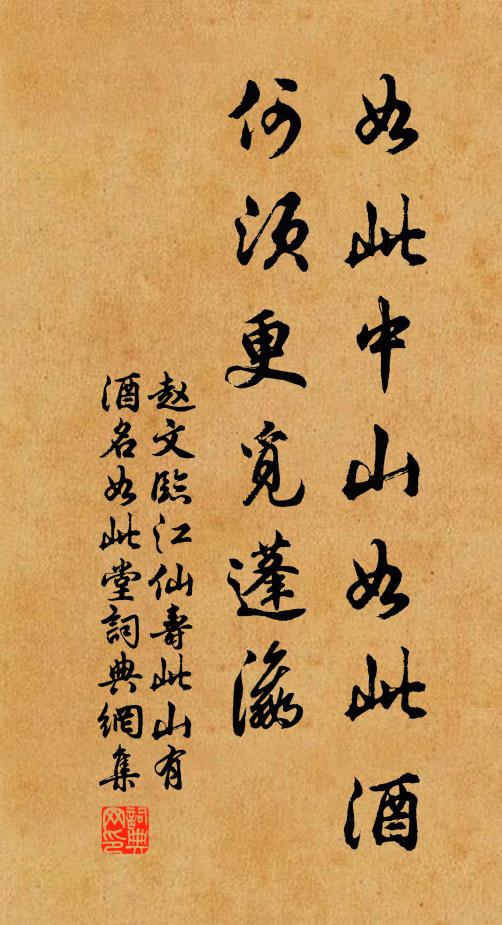 如此中山如此酒
何须更覓蓬瀛
赵文臨江仙壽此山有
酒名如此堂詞典網集
詞典网印